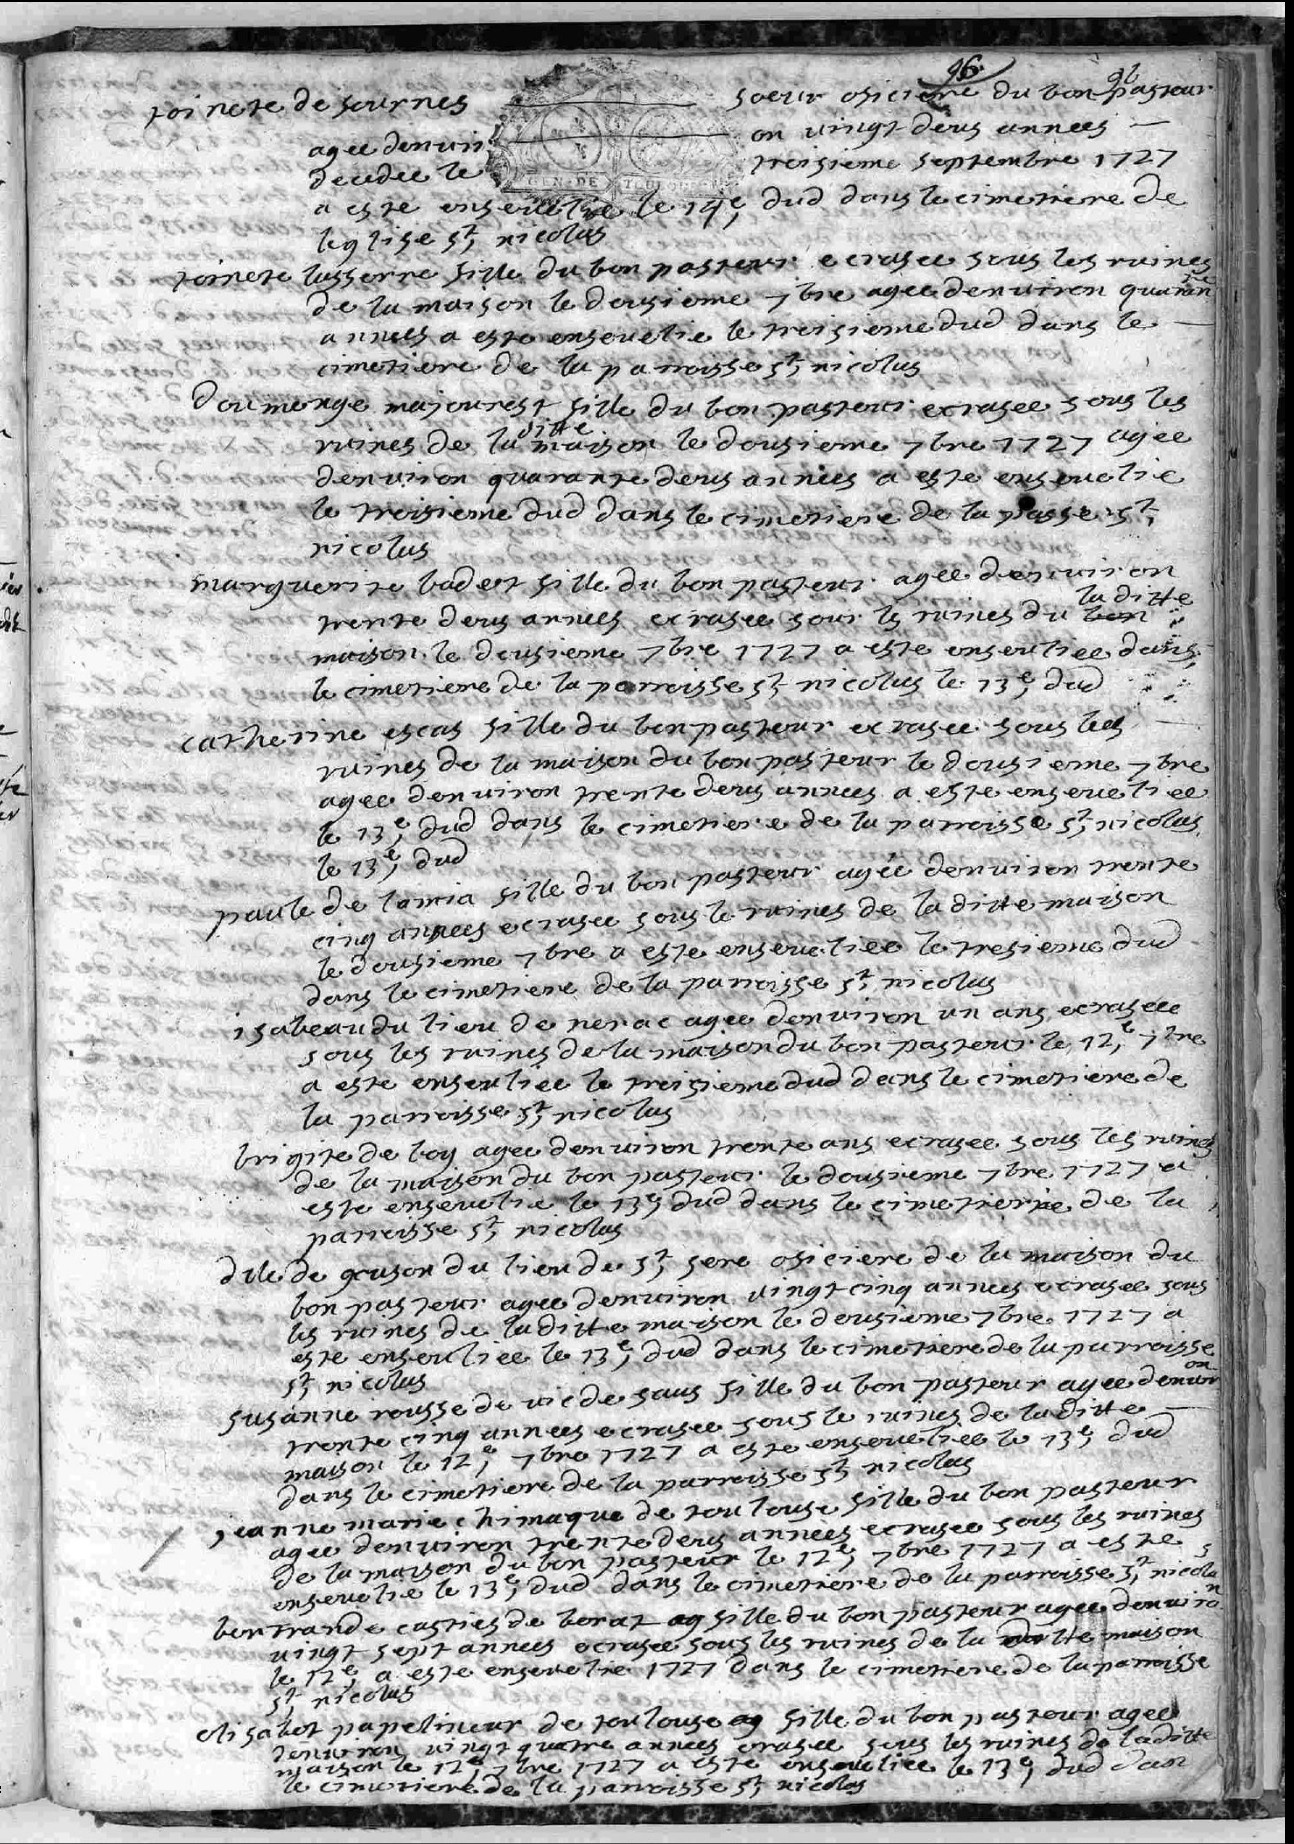 96. 96
toinete de sournes soeur osiciere du bon pasteur
agee denviron vingt deus annees
decedee le treisieme septembre 1727
GEN DE TOULOUSE
a este ensevelie le 14e, dud dans le cimetiere de
leglise st, nicolas
toinete lasserre fille du bon pasteur ecrasee sous les ruines
de la maison le dousieme 7bre agee denviron quarante
annees a este ensevelie le treisieme dud dans le
cimetiere de la parroisse st, nicolas
doumenge majourest fille du bon pasteur ecrasee sous les
ruines de la ditte maison le dousieme 7bre 1727 agee
denviron quarante deus annees a este ensevelie
le treisieme dud dans le cimetiere de la passe st,
nicolas
marguerite badet fille du bon pasteur agee denviron
trente deus annees ecrasee sour ls ruines du bon la ditte
maison le dousieme 7bre 1727 a este enseveliee dans
le cimetiere de la parroisse st nicolas le 13e, dud
catherine escas fille du bon pasteur ecrasee sous les
ruines de la maison du bon pasteur le dousieme 7bre
agee denviron trente deus annees a este enseveliee
le 13e, dud dans le cimetiere de la parroisse st, nicolas
le 13e, dud
paule de lamia fille du bon pasteur agée denviron trente
cinq annees ecrasee sous le ruines de la ditte maison
le dousieme 7bre a este enseveliee le tresieme dud
dans le cimetiere de la parroisse st, nicolas
isabeau du lieu de nerac agee denviron un ans ecrasee
sous les ruines de la maison du bon pasteur le 12e, 7bre
a este enseuliée le treisieme dud dans le cimetiere de
la parroisse st, nicolas
brigite de boy agee denviron trente ans ecrasee sous les ruines
de la maison du bon pasteur le dousieme 7bre 1727 a
este ensevelie le 13e dud dans le cimetiere de la
parroisse st, nicolas
dlle de gruson du lieu de st, sere osiciere de la maison du
bon pasteur agee denviron vingt cinq annees ecrasee sous
les ruines de la ditte maison le dousieme 7bre 1727 a
este enseuliee le 13e, dud dans le cimetiere de la parroisse
st, nicolas
susanne rousse de vic de saus fille du bon pasteur agee denviron
trente cinq annees ecrasee sous le ruines de la ditte
maison le 12e, 7bre 1727 a este enseveliee le 13e dud
dans le cimetiere de la parroisse st, nicolas
jeanne marie chimaque de toulouse fille du bon pasteur
agee denviron trente deus annees ecrasee sous les ruines
de la maison du bon pasteur le 12e, 7bre 1727 a este
ensevelie le 13e, dud dans le cimetiere de la parroisse st, nicolas
bertrande casties de borat ag fille du bon pasteur agee denviron
vingt sept annees ecrasee sous les ruines de la ditte maison
le 12e, a este ensevelie 1727 dans le cimetiere de la parroisse
st, nicolas
elisabet papelineur de toulouse ag fille du bon pasteur agee
denviron vingt quatre annees ecrasee sous les ruines de la ditte
maison le 12e, 7bre 1727 a este enseveliee le 13e dud dan
le cimetiere de la parroisse st nicolas